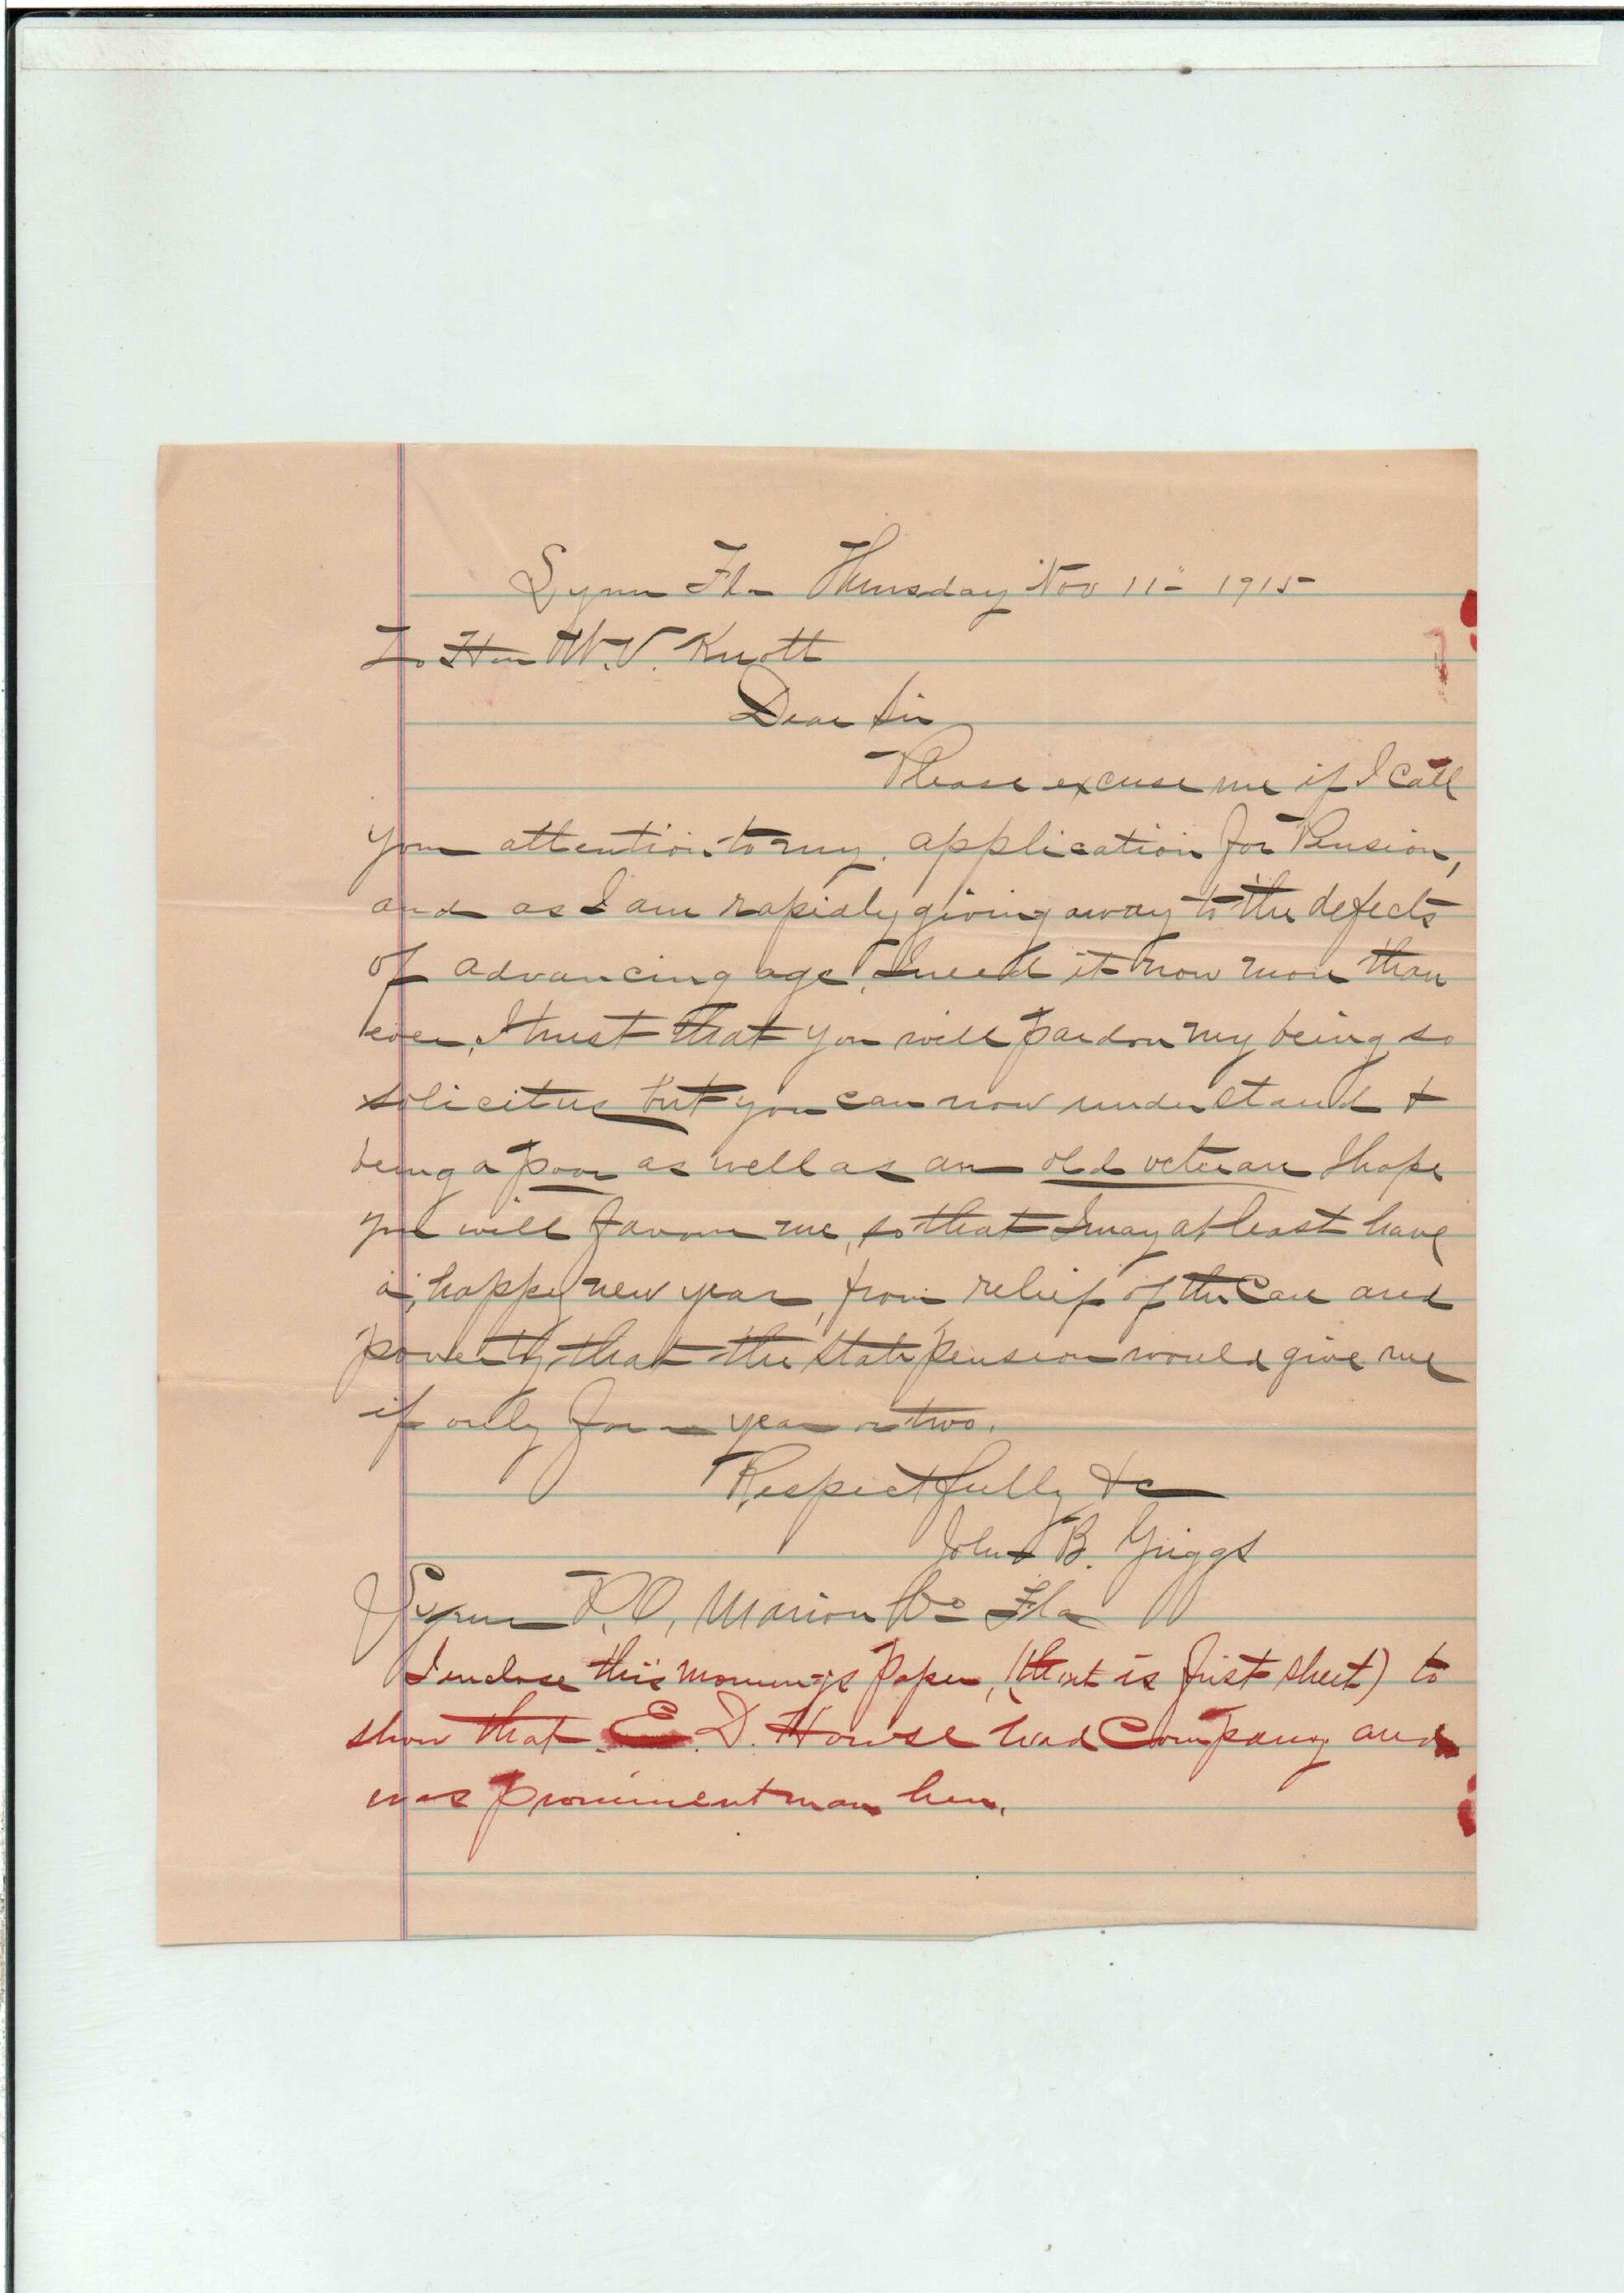 Lynn Fla Thursday Nov 11- 1915
To Hon W.V. Knott
Dear Sir
Please excuse me if I call
your attention to my application for Pension,
and as I am rapidly giving away to the defects
of advancing age, I need it now more than
ever, I trust that you will pardon my being so
solicitus but you can now understand &
being a poor as well as an old veteran I hope
you will favour me, so that I may at least have
a happy new year, from relief of the Care and
poverty, that the State pension would give me
if only for a year or two.
Respectfully &c
John B. Griggs
Lynn P.O, Marion Co Fla
I enclose this morning's paper, (that is first sheet) to
show that E. D. Howse had Company and
was prominent man here.